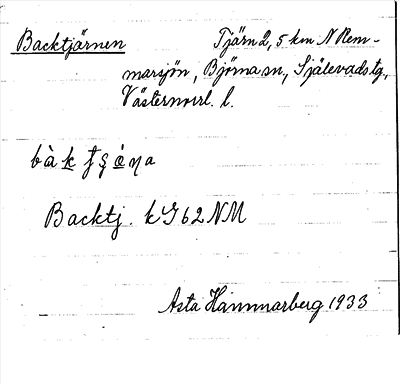 Backtjärnen Tjärn 2,5 km N Rem-
marsjön, Björna sn, Själevads tg,
Västernorrl. l.
Backtj. kG 62 NM
Asta Hammarberg 1933